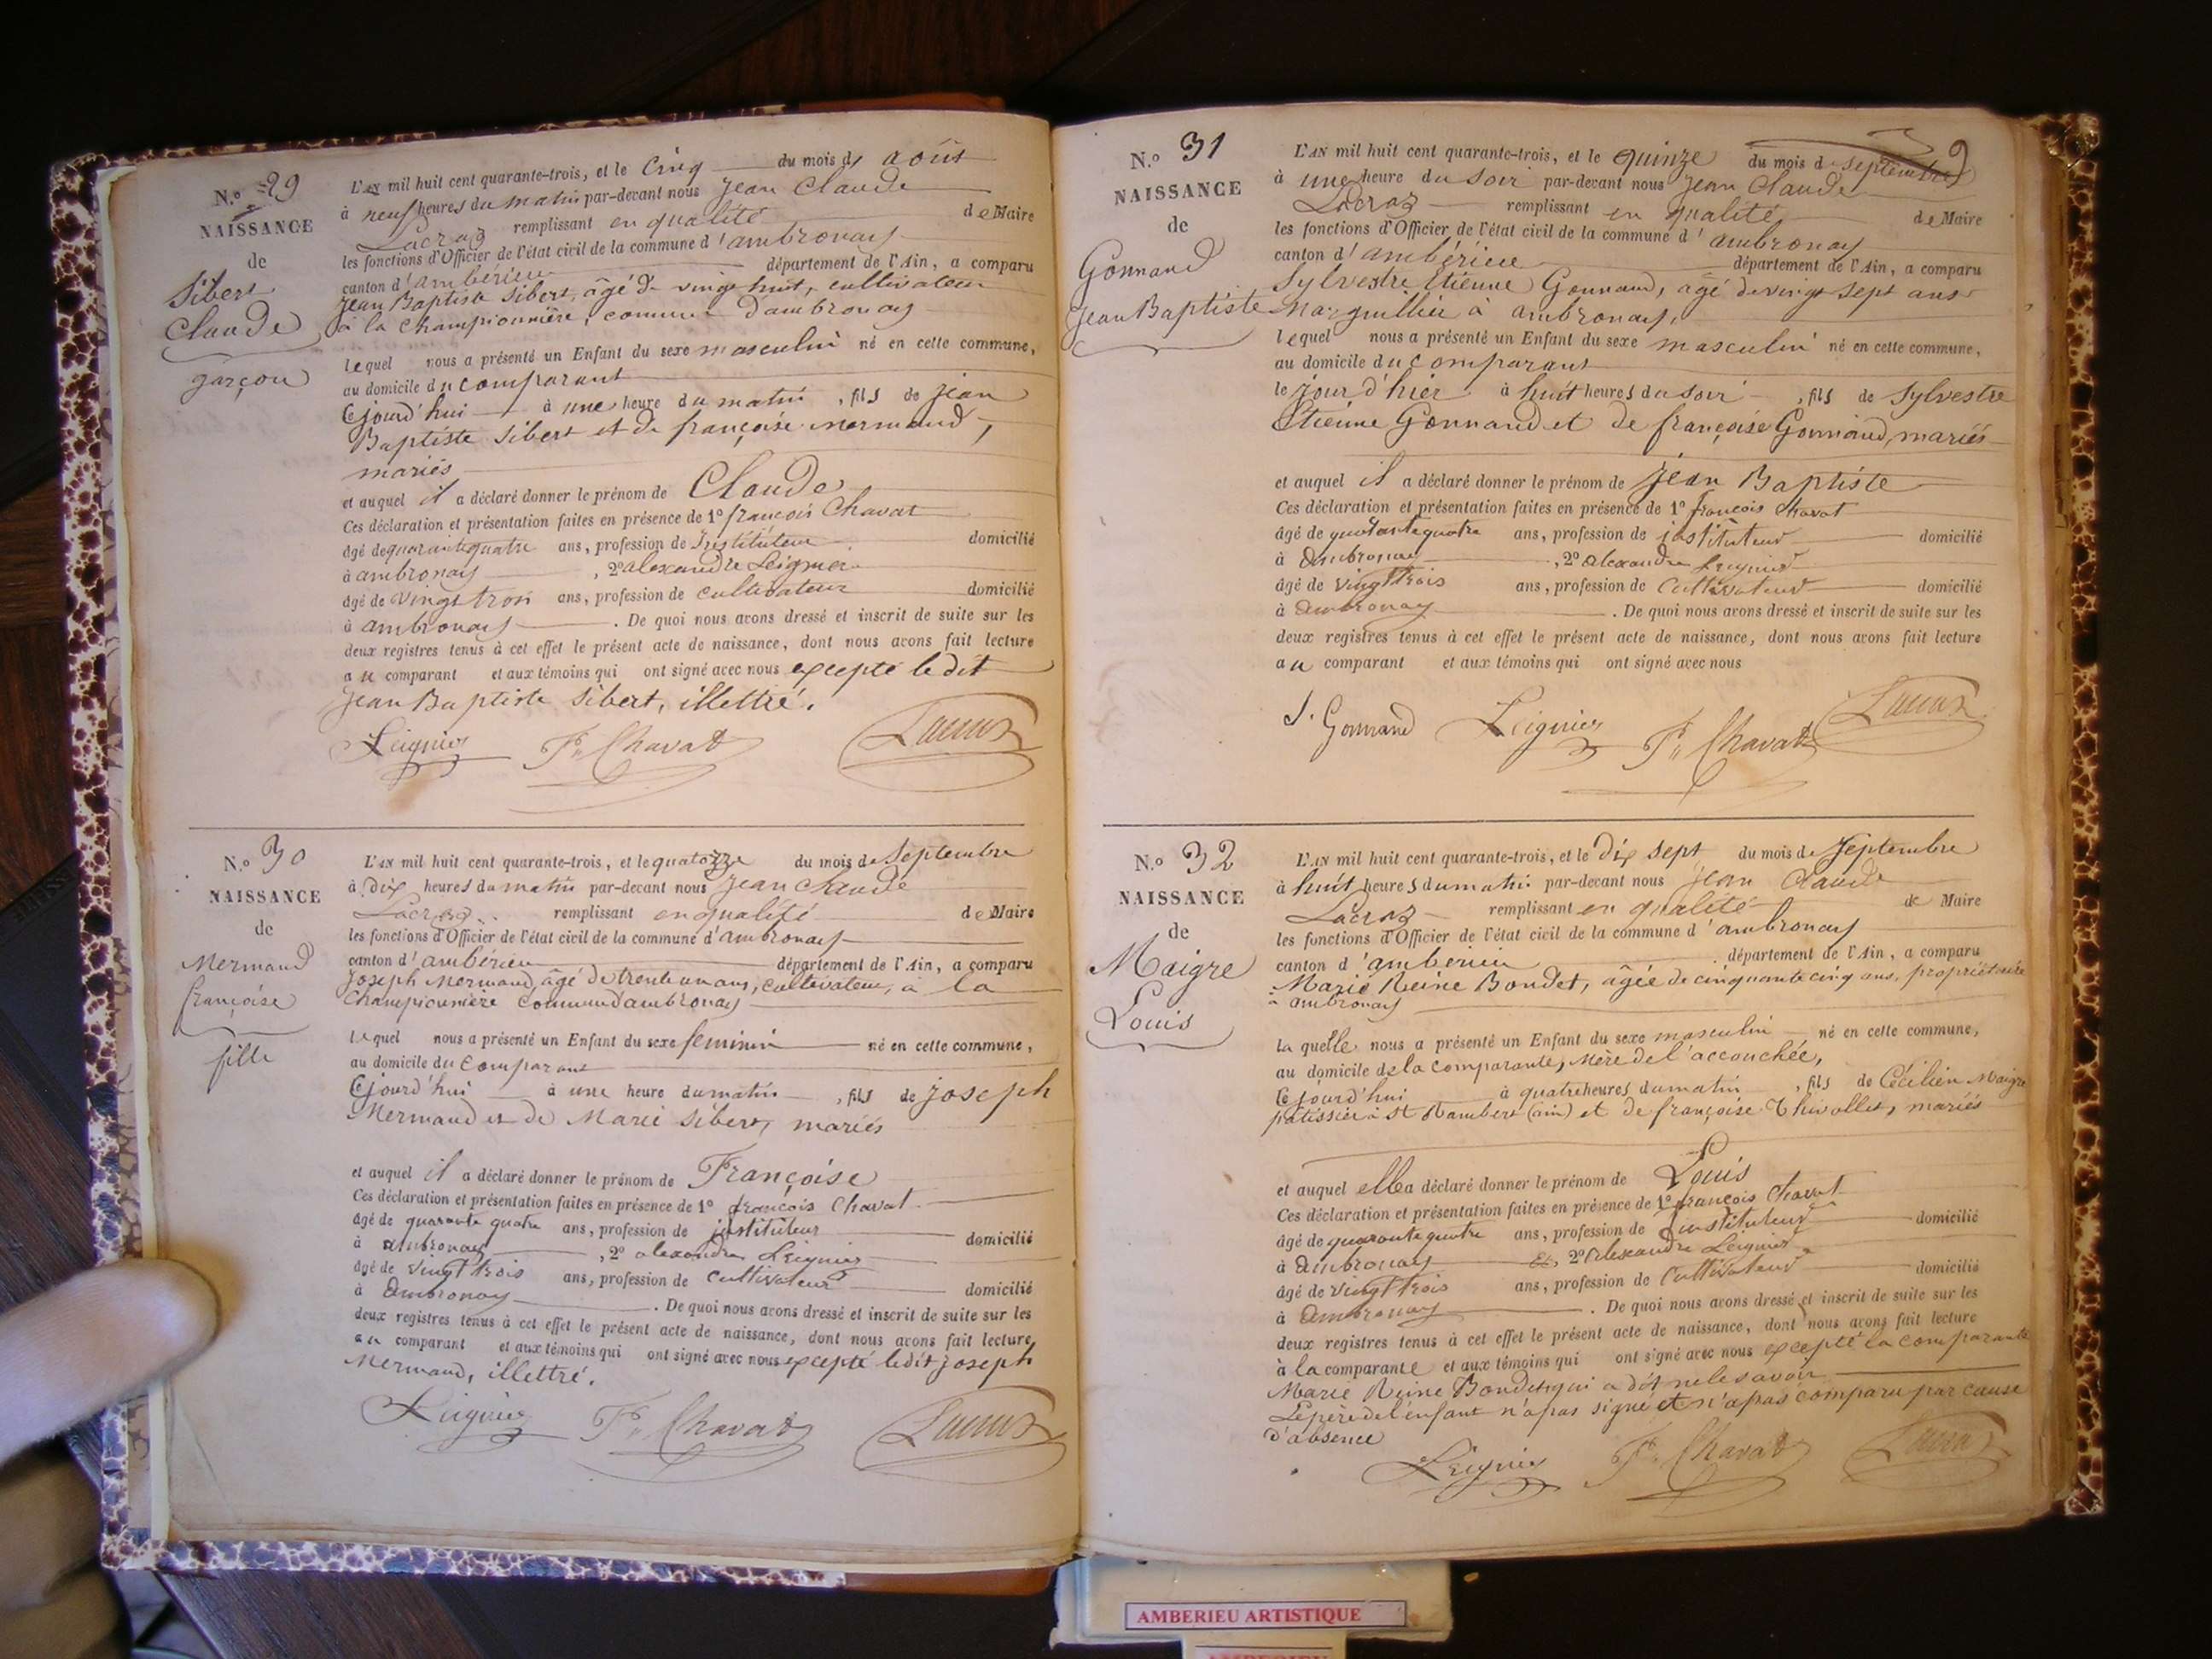 N.º 29
NAISSANCE
de
Sibert
Claude
garçon
L'AN mil huit cent quarante-trois, et le Cinq du mois d' août
à neuf heures du matin par-devant nous Jean Claude
Lacroz remplissant en qualité de Maire
les fonctions d'Officier de l'état civil de la commune d'ambronay
canton d'ambérieu département de l'Ain, a comparu
Jean Baptiste Sibert, âgé de vingt huit, cultivateur
à la Championnière, commune d'ambronay
lequel nous a présenté un Enfant du sexe masculin né en cette commune,
au domicile du comparant
Cejourd'hui à une heure du matin, fils de jean
Baptiste Sibert et de françoise mermand,
mariés
et auquel il a déclaré donner le prénom de Claude
Ces déclaration et présentation faites en présence de 1º françois Chavat
âgé de quarante quatre ans, profession de Instituteur domicilié
à ambronay, 2º alexandre Leignier
âgé de vingt trois ans, profession de cultivateur domicilié
à ambronay. De quoi nous avons dressé et inscrit de suite sur les
deux registres tenus à cet effet le présent acte de naissance, dont nous avons fait lecture
au comparant et aux témoins qui ont signé avec nous excepté ledit
Jean Baptiste Sibert, illettré.
Leignier Fs Chavat Lacroz
N.º 30
NAISSANCE
de
Mermand
françoise
fille
L'AN mil huit cent quarante-trois, et le quatorze du mois de Septembre
à Dix heures du matin par-devant nous Jean Claude
Lacroz remplissant en qualité de Maire
les fonctions d'Officier de l'état civil de la commune d'ambronay
canton d'ambérieu département de l'Ain, a comparu
Joseph Mermand, âgé de trente un ans, cultivateur, a la
Championnière Commune d'ambronay
lequel nous a présenté un Enfant du sexe feminin né en cette commune,
au domicile du Comparant
Cejourd'hui à une heure du matin, fils de joseph
Mermand et de Marie Sibert, mariés
et auquel il a déclaré donner le prénom de Françoise
Ces déclaration et présentation faites en présence de 1º françois Chavat
âgé de quarante quatre ans, profession de instituteur domicilié
à ambronay, 2º alexandre Leignier
âgé de vingt trois ans, profession de Cultivateur domicilié
à ambronay. De quoi nous avons dressé et inscrit de suite sur les
deux registres tenus à cet effet le présent acte de naissance, dont nous avons fait lecture
au comparant et aux témoins qui ont signé avec nous excepté ledit joseph
Mermand, illettré.
Leignier Fs Chavat Lacroz
9
N.º 31
NAISSANCE
de
Gonnand
Jean Baptiste
L'AN mil huit cent quarante-trois, et le quinze du mois de septembre
à une heure du soir par-devant nous Jean Claude
Lacroz remplissant en qualité de Maire
les fonctions d'Officier de l'état civil de la commune d'ambronay
canton d'ambérieu département de l'Ain, a comparu
Sylvestre Etienne Gonnand, âgé de vingt sept ans
Marguillier à ambronay,
lequel nous a présenté un Enfant du sexe masculin né en cette commune,
au domicile du comparant
le jour d'hier à huit heures du soir, fils de Sylvestre
Etienne Gonnand et de françoise Gonnand, mariés
et auquel il a déclaré donner le prénom de jean Baptiste
Ces déclaration et présentation faites en présence de 1º françois Chavat
âgé de quarante quatre ans, profession de instituteur domicilié
à Ambronay, 2º alexandre Leignier
âgé de vingt trois ans, profession de Cultivateur domicilié
à Ambronay. De quoi nous avons dressé et inscrit de suite sur les
deux registres tenus à cet effet le présent acte de naissance, dont nous avons fait lecture
au comparant et aux témoins qui ont signé avec nous
S. Gonnand Leignier Fs Chavat Lacroz
N.º 32
NAISSANCE
de
Maigre
Louis
L'AN mil huit cent quarante-trois, et le Dix sept du mois de Septembre
à huit heures du matin par-devant nous Jean Claude
Lacroz remplissant en qualité de Maire
les fonctions d'Officier de l'état civil de la commune d'ambronay
canton d'ambérieu département de l'Ain, a comparu
Marie Reine Bondet, âgée de cinquante cinq ans, propriétaire
à ambronay
laquelle nous a présenté un Enfant du sexe masculin né en cette commune,
au domicile de la comparante, Mère de l'accouchée,
Cejourd'hui à quatre heures du matin, fils de Cécilien Maigre
patissier à St Rambert (ain) et de françoise Thivollet, mariés
et auquel elle a déclaré donner le prénom de Louis
Ces déclaration et présentation faites en présence de 1º françois Chavat
âgé de quarante quatre ans, profession de instituteur domicilié
à Ambronay Et, 2º Alexandre Leignier
âgé de vingt trois ans, profession de Cultivateur domicilié
à Ambronay. De quoi nous avons dressé et inscrit de suite sur les
deux registres tenus à cet effet le présent acte de naissance, dont nous avons fait lecture
à la comparante et aux témoins qui ont signé avec nous excepté la comparante
Marie Reine Bondet qui a dit ne le savoir
Le père de l'enfant n'a pas signé et n'a pas comparu par cause
d'absence
Leignier Fs Chavat Lacroz
AMBERIEU ARTISTIQUE
AMBERIEU